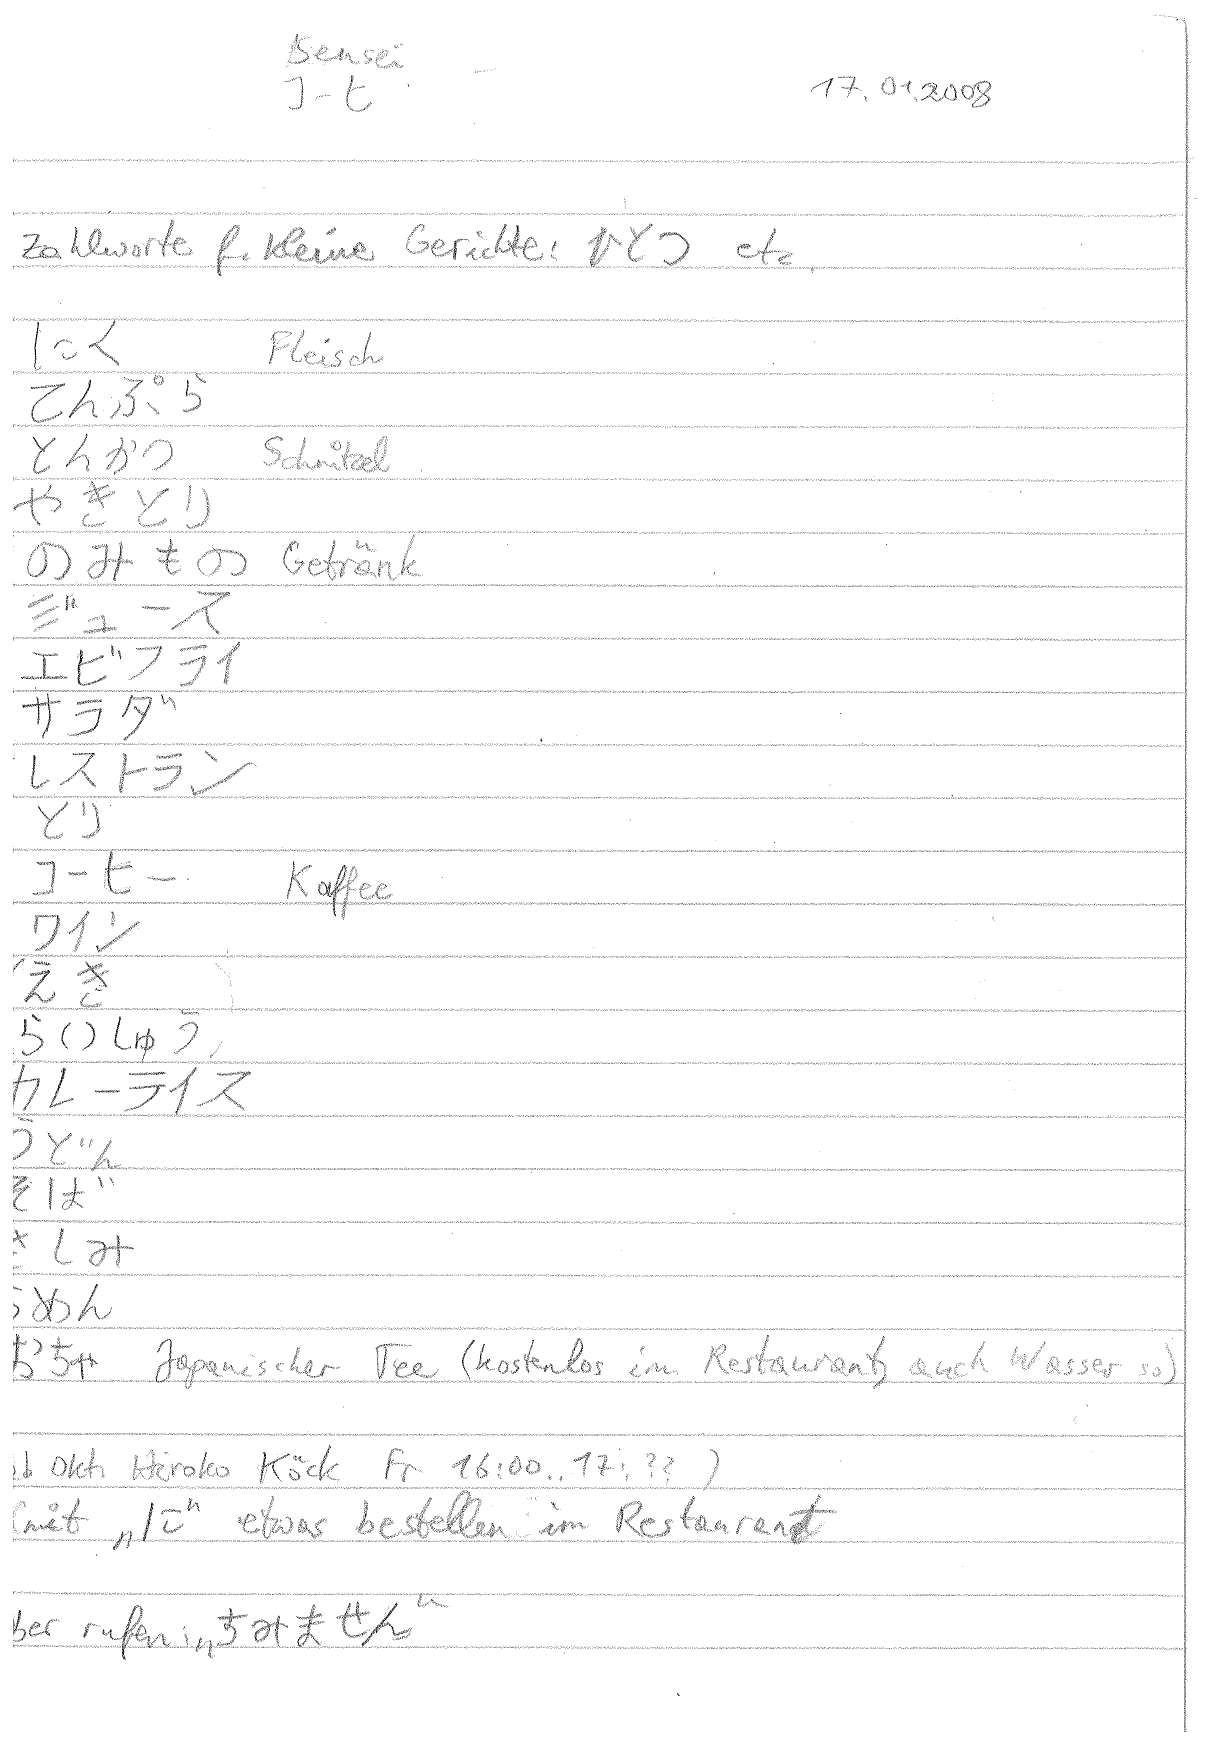 Sensei
コーヒ
17.01.2008
Zahlworte f. kleine Gerichte: ひとつ etc.
にく Fleisch
てんぷら
とんかつ Schnitzel
やきとり
のみもの Getränk
ジュース
エビフライ
サラダ
レストラン
とり
コーヒー Kaffee
ワイン
えき
らいしゅう
カレーライス
うどん
そば
さしみ
らめん
おちゃ Japanischer Tee (kostenlos im Restaurant, auch Wasser so)
ab Okt. Hiroko Köck Fr 16:00..17:??)
(mit „に" etwas bestellen im Restaurant
ber rufen: „すみません"